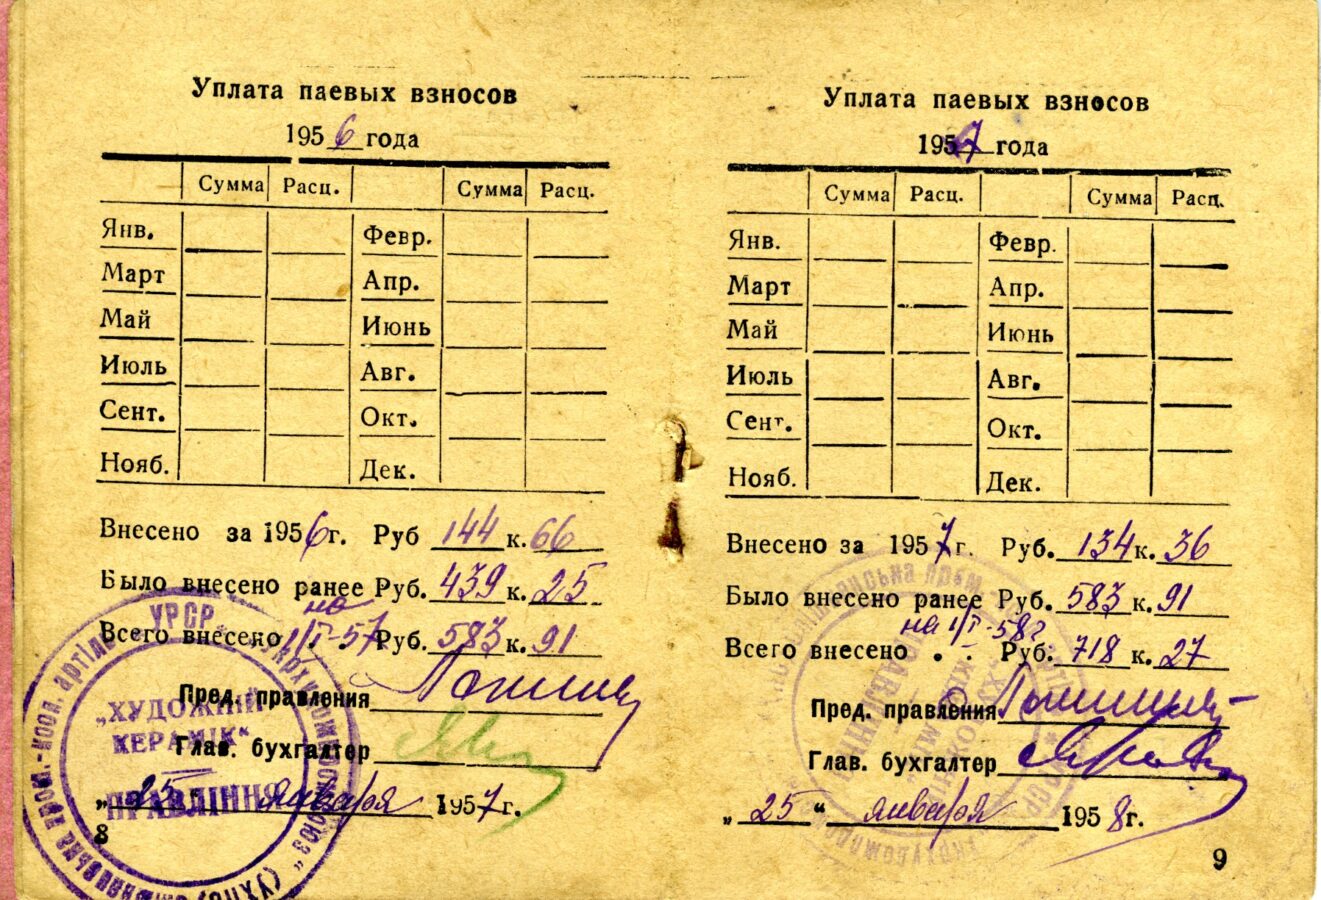 Уплата паевых взносов
1956 года
Сумма Расц. Сумма Расц.
Янв. Февр.
Март Апр.
Май Июнь
Июль Авг.
Сент. Окт.
Нояб. Дек.
Внесено за 1956 г. Руб 144 к. 66
Было внесено ранее Руб. 439 к. 25
на
Всего внесено 1/I-57 Руб. 583 к. 91
Пред. правления
Глав. бухгалтер
„25“ января 1957 г.
8
УРСР
пром.-кооп. артіль
„ХУДОЖНІЙ
КЕРАМІК“
ПРАВЛІННЯ
Уплата паевых взносов
1957 года
Сумма Расц. Сумма Расц.
Янв. Февр.
Март Апр.
Май Июнь
Июль Авг.
Сент. Окт.
Нояб. Дек.
Внесено за 1957 г. Руб. 134 к. 36
Было внесено ранее Руб. 583 к. 91
на 1/I-58г
Всего внесено . . Руб. 718 к. 27
Пред. правления
Глав. бухгалтер
„25“ января 1958 г.
9